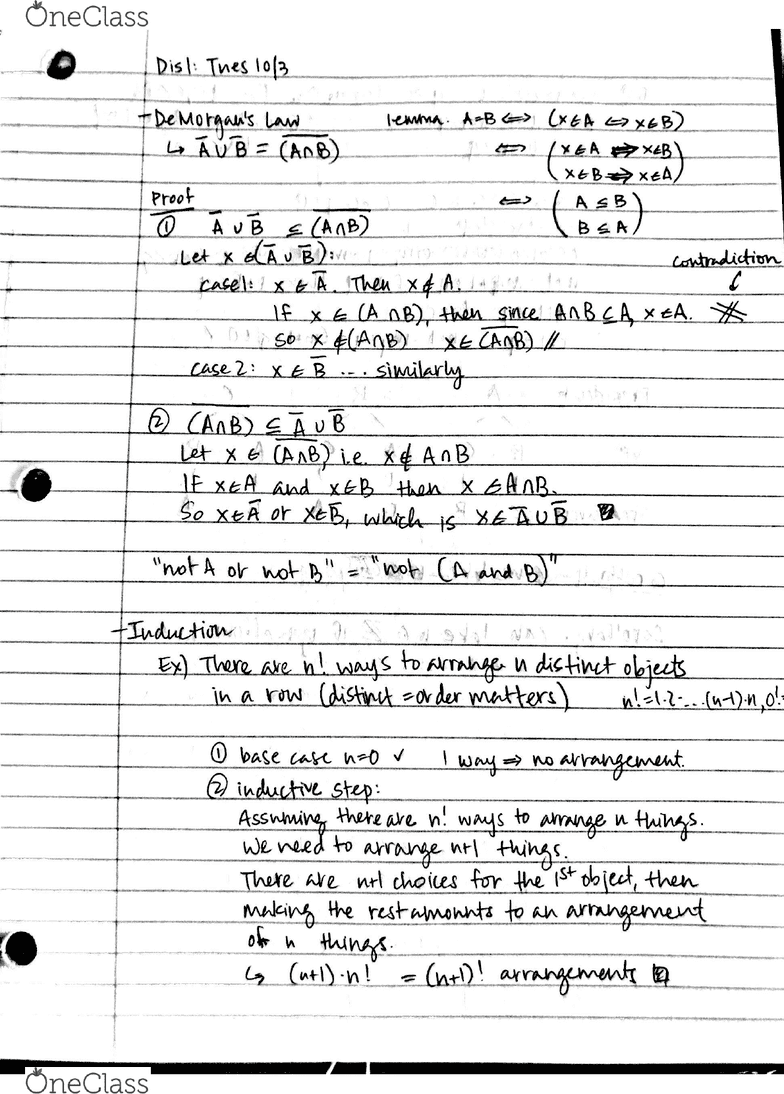 OneClass
Dis1: Tues 10/3
- DeMorgan's Law lemma. A=B ⟺ (x∈A ⟺ x∈B)
↳ A̅ ∪ B̅ = \overline{(A∩B)} ⟺ (x∈A ⟹ x∈B
x∈B ⟹ x∈A)
Proof ⟺ (A ⊆ B
B ⊆ A)
① A̅ ∪ B̅ ⊆ \overline{(A∩B)}
Let x ∈ (A̅ ∪ B̅):
contradiction
case1: x ∈ A̅. Then x ∉ A.
If x ∈ (A∩B), then since A∩B ⊆ A, x∈A.
So x ∉ (A∩B) x ∈ \overline{(A∩B)} //
case 2: x ∈ B̅ ... similarly
② \overline{(A∩B)} ⊆ A̅ ∪ B̅
Let x ∈ \overline{(A∩B)}, i.e. x ∉ A∩B
If x∈A and x∈B then x ∈ A∩B.
So x∈A̅ or x∈B̅, which is x∈A̅∪B̅
"not A or not B" = "not (A and B)"
- Induction
Ex) There are n! ways to arrange n distinct objects
in a row (distinct = order matters) n! = 1·2·...(n-1)·n, 0! =
① base case n=0 ✓ 1 way ⟹ no arrangement.
② inductive step:
Assuming there are n! ways to arrange n things.
We need to arrange n+1 things.
There are n+1 choices for the 1st object, then
making the rest amounts to an arrangement
of n things.
↳ (n+1)·n! = (n+1)! arrangements
OneClass